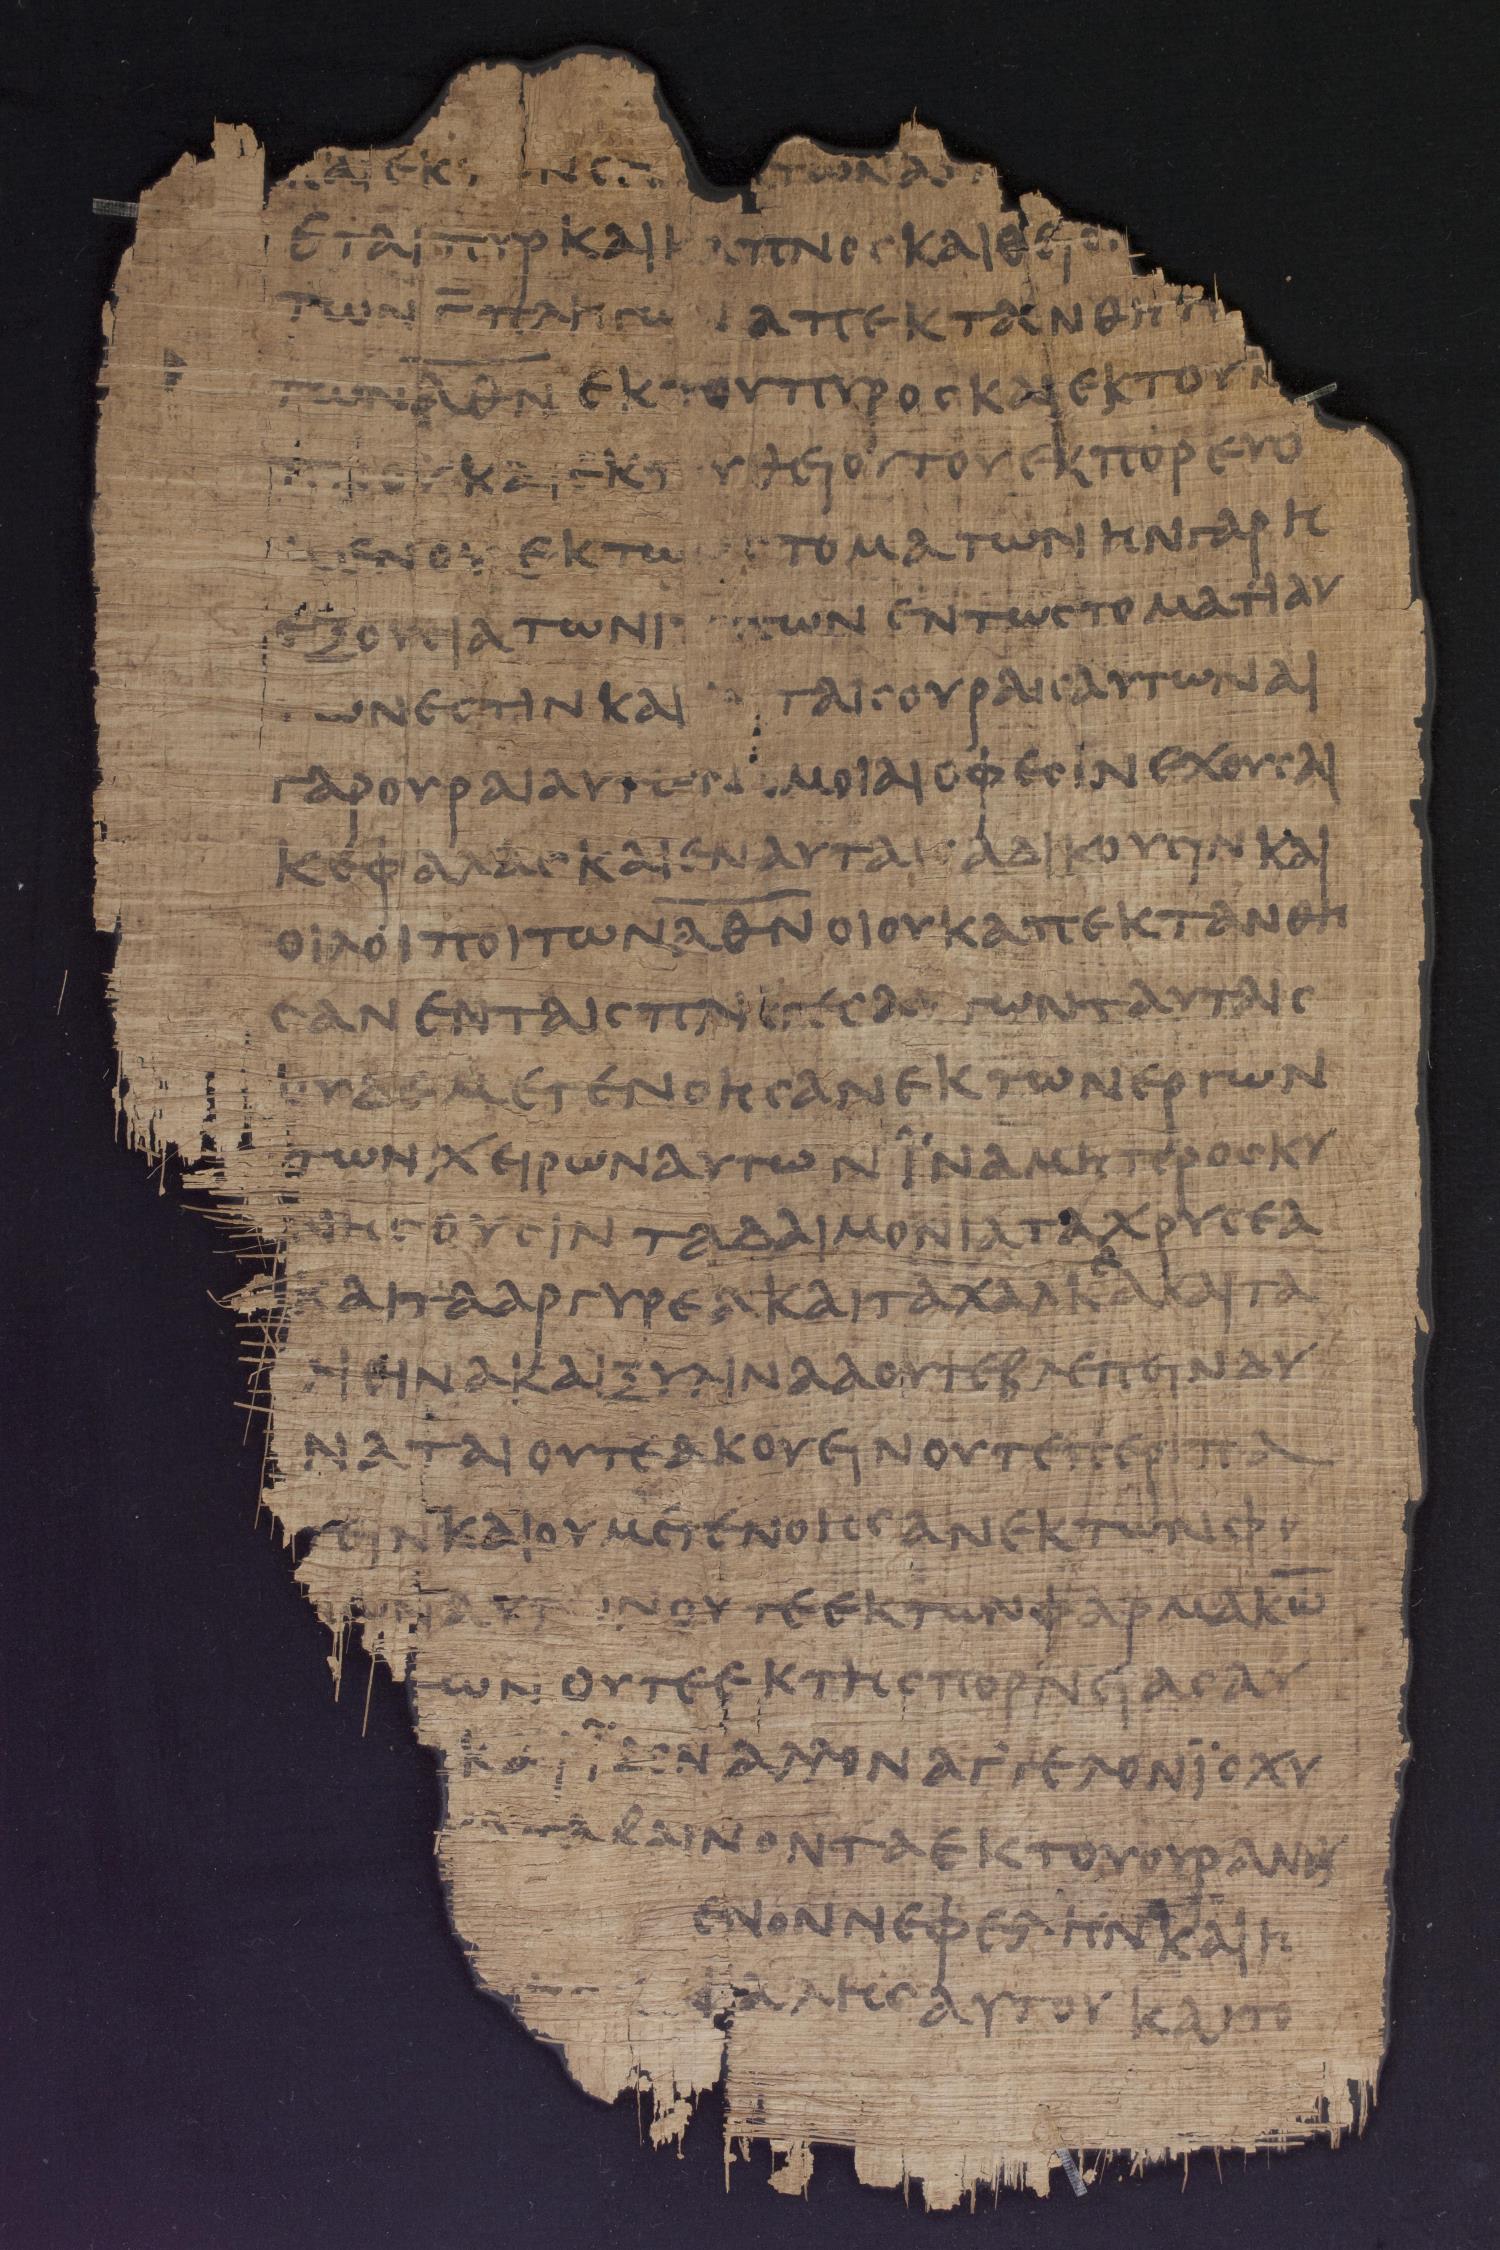 και εκ των στοματων α
εται πυρ και καπνος και θειον
των γ̅ πληγων απεκτανθη
των α̅θ̅ν̅ εκ του πυρος και εκ του κ
πνου και εκ του θειου του εκπορευο
μενου εκ των στοματων ην γαρ η
εξουσια των ιππων εν τω στοματι αυ
των εστιν και ταις ουραις αυτων αι
γαρ ουραι αυτων ομοιαι οφεσιν εχουσαι
κεφαλας και εν αυταις αδικουσιν και
οι λοιποι των α̅θ̅ν̅ οι ουκ απεκτανθη
σαν εν ταις πλ των ταυταις
ουδε μετενοησαν εκ των εργων
των χειρων αυτων ϊνα μη προσκυ
νησουσιν τα δαιμονια τα χρυσεα
και τα αργυρεα και τα χαλκεα και τα
λιθινα και ξυλινα α ουτε βλεπειν δυ
ναται ουτε ακουειν ουτε περιπα
τειν και ου μετενοησαν εκ των φο
νων αυτων ουτε εκ των φαρμακω̅
των ουτε εκ της πορνειας αυ
και ϊδον αλλον αγγελον ϊσχυ
καταβαινοντα εκ του ουρανου
ενον νεφελην και η
φαλης αυτου και το